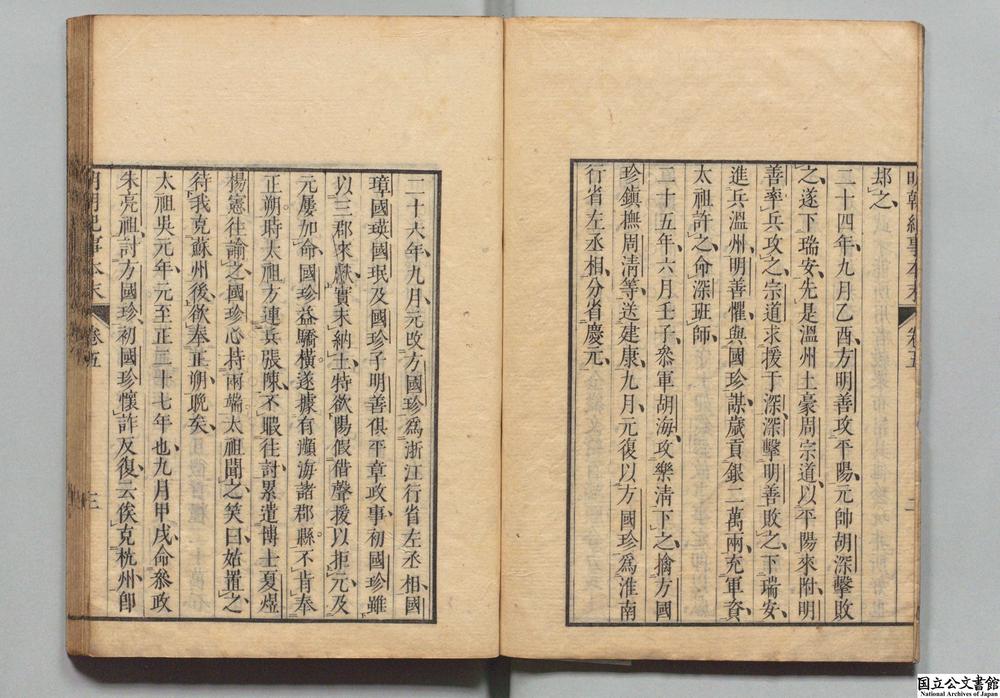 明朝紀事本末 卷五 二
却之
二十四年九月乙酉方明善攻平陽元帥胡深擊敗
之遂下瑞安先是溫州土豪周宗道以平陽來附明
善率兵攻之宗道求援于深深擊明善敗之下瑞安
進兵溫州明善懼與國珍謀歲貢銀二萬兩充軍資
太祖許之命深班師
二十五年六月壬子叅軍胡海攻樂清下之擒方國
珍鎮撫周清等送建康九月元復以方國珍爲淮南
行省左丞相分省慶元
二十六年九月元改方國珍爲浙江行省左丞相國
璋國瑛國珉及國珍子明善俱平章政事初國珍雖
以三郡來獻實未納土特欲陽假借聲援以拒元及
元屢加命國珍益驕橫遂據有瀕海諸郡縣不肯奉
正朔時太祖方連兵張陳不暇往討累遣博士夏煜
楊憲往諭之國珍心持兩端太祖聞之笑曰姑置之
待我克蘇州後欲奉正朔晩矣
太祖吳元年元至正二十七年也九月甲戌命叅政
朱亮祖討方國珍初國珍懷詐反復云俟克杭州卽
明朝紀事本末 卷五 三
国立公文書館
National Archives of Japan